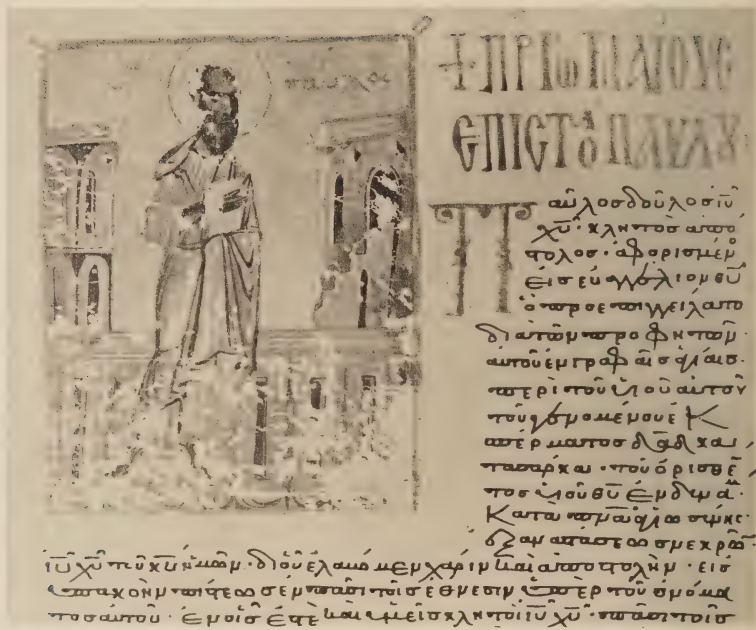 παυλος
+ ΠΡ ΡΩΜΑΙΟΥC
ЄΠΙCΤΟ ΠΑΥΛΟΥ
Παῦλος δοῦλος ιῦ
χῦ· κλητὸς ἀπό
στολος· ἀφορισμέν
εἰς εὐαγγέλιον θῦ
ὃ προεπηγγείλατο
διὰ τῶν προφητῶν·
αὐτοῦ ἐν γραφαῖς ἁγίαις·
περὶ τοῦ υἱοῦ αὐτοῦ
τοῦ γενομένου ἐκ
σπέρματος δᾱδ κα
τὰ σάρκα· τοῦ ὁρισθέ
τος υἱοῦ θῦ ἐν δυνάμ
κατὰ πνᾱ ἁγιωσύνης·
ἐξ ἀναστάσεως νεκρῶ
ιῦ χῦ τοῦ κῦ ἡμῶν· δι οὗ ἐλάβομεν χάριν καὶ ἀποστολὴν· εἰς
ὑπακοὴν πίστεως ἐν πᾶσι τοῖς ἔθνεσιν ὑπὲρ τοῦ ὀνόμα
τος αὐτοῦ· ἐν οἷς ἐστὲ καὶ ὑμεῖς κλητοὶ ιῦ χῦ· πᾶσι τοῖς